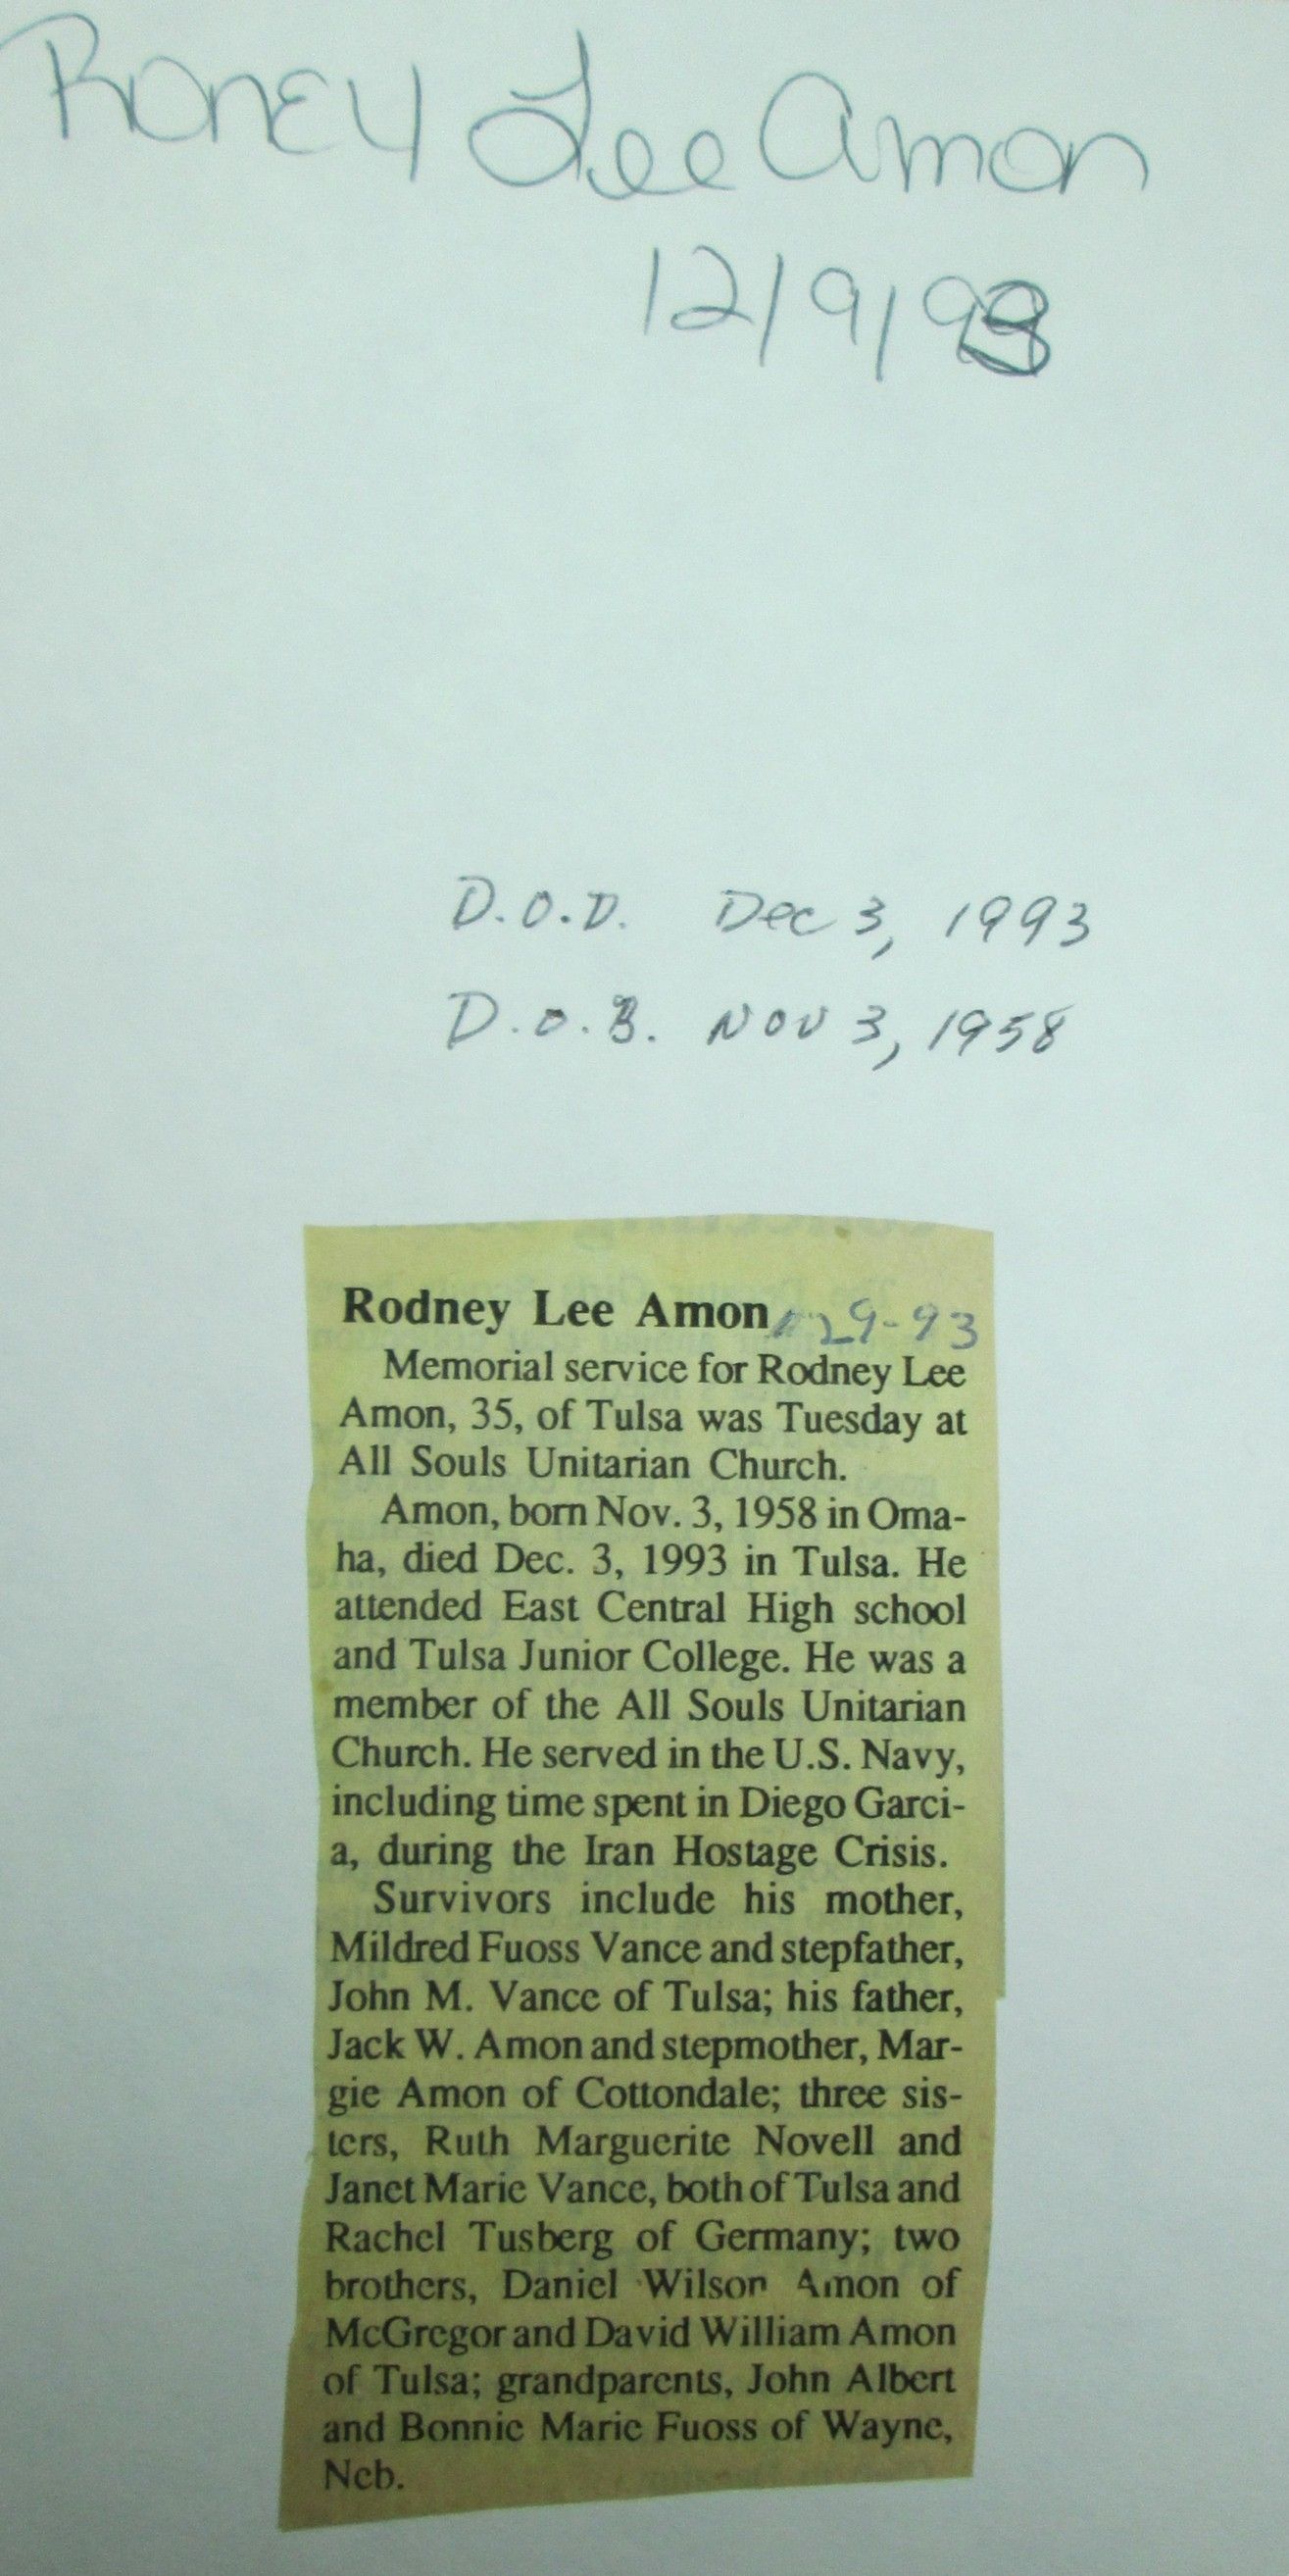 Roney Lee Amon
12/9/93
D.O.D. Dec 3, 1993
D.O.B. Nov 3, 1958
Rodney Lee Amon 29-93
Memorial service for Rodney Lee
Amon, 35, of Tulsa was Tuesday at
All Souls Unitarian Church.
Amon, born Nov. 3, 1958 in Oma-
ha, died Dec. 3, 1993 in Tulsa. He
attended East Central High school
and Tulsa Junior College. He was a
member of the All Souls Unitarian
Church. He served in the U.S. Navy,
including time spent in Diego Garci-
a, during the Iran Hostage Crisis.
Survivors include his mother,
Mildred Fuoss Vance and stepfather,
John M. Vance of Tulsa; his father,
Jack W. Amon and stepmother, Mar-
gie Amon of Cottondale; three sis-
ters, Ruth Marguerite Novell and
Janet Marie Vance, both of Tulsa and
Rachel Tusberg of Germany; two
brothers, Daniel Wilson Amon of
McGregor and David William Amon
of Tulsa; grandparents, John Albert
and Bonnie Marie Fuoss of Wayne,
Neb.